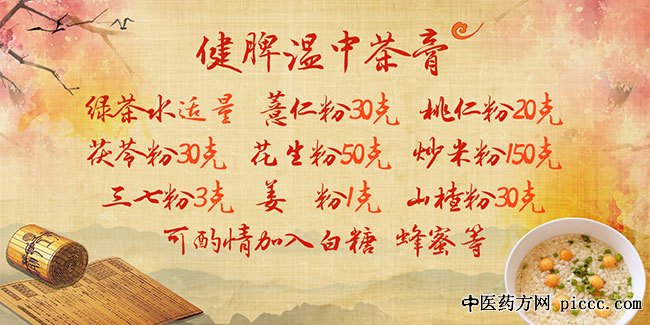 健脾温中茶膏
绿茶水适量 薏仁粉30克 桃仁粉20克
茯苓粉30克 花生粉50克 炒米粉150克
三七粉3克 姜 粉1克 山楂粉30克
可酌情加入白糖 蜂蜜等
中医药方网 piccc.com